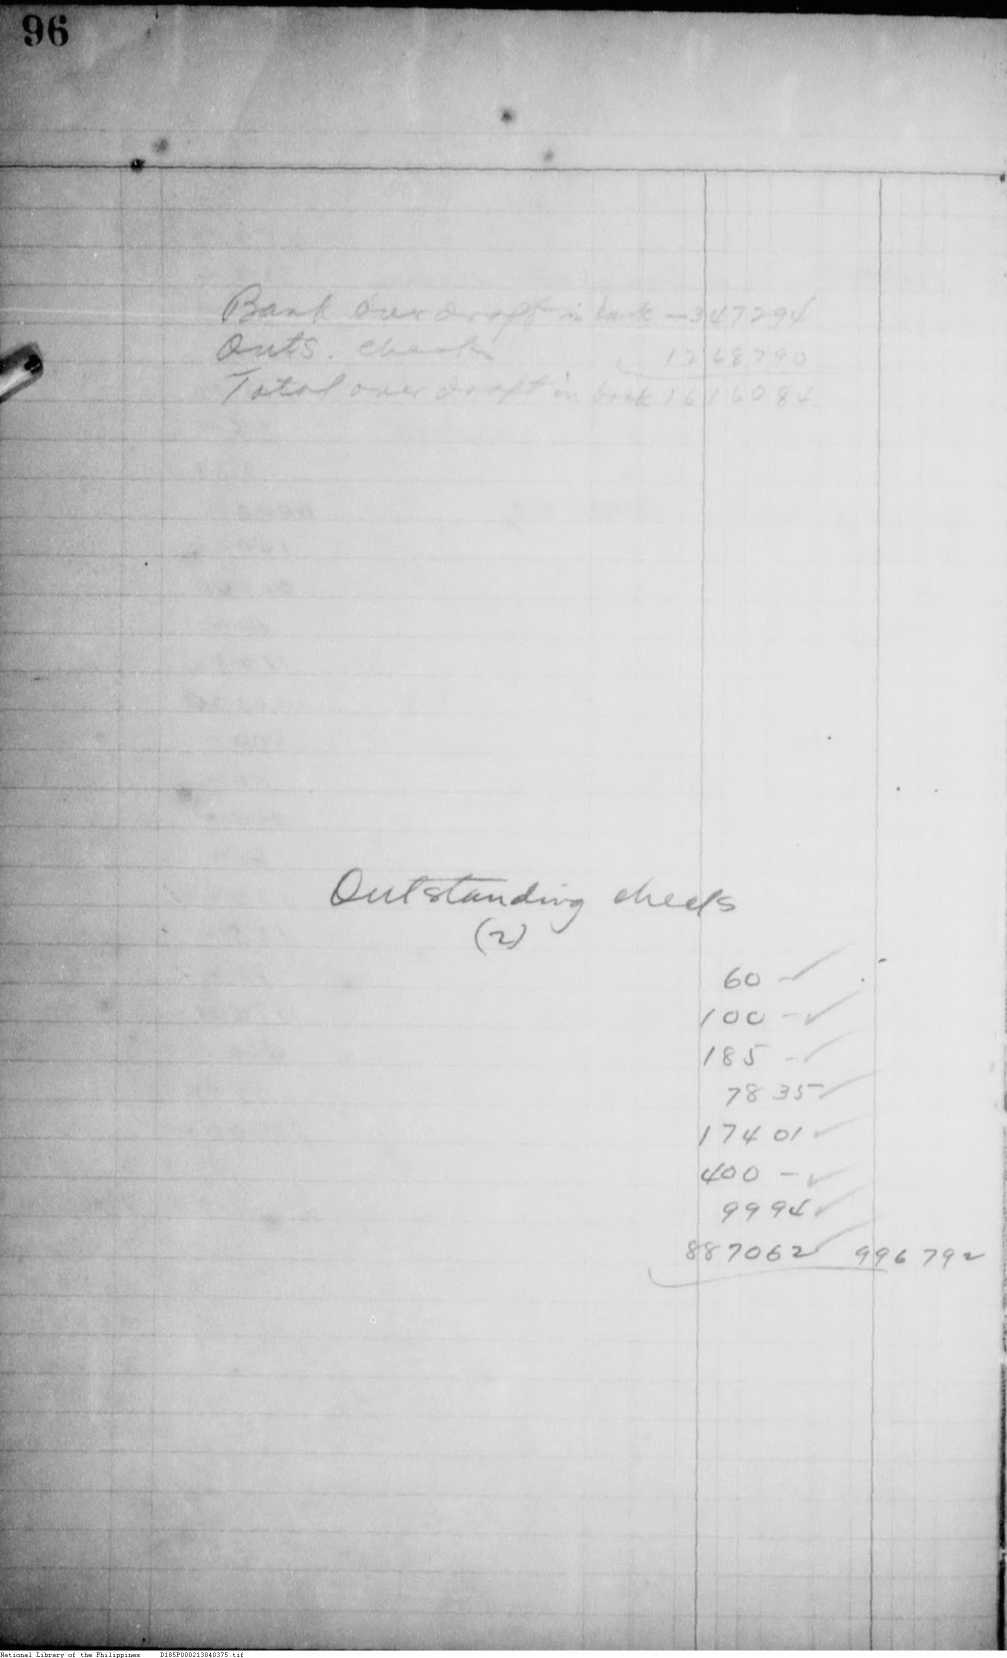 96
Bank over draft in bank — 347294
Outs. checks 1268790
Total over draft in book 1616084
Outstanding checks
(2)
60 - ✓
100 - ✓
185 - ✓
7835 ✓
17401 ✓
400 - ✓
9994 ✓
887062 ✓ 996792
National Library of the Philippines D185P000213040375.tif